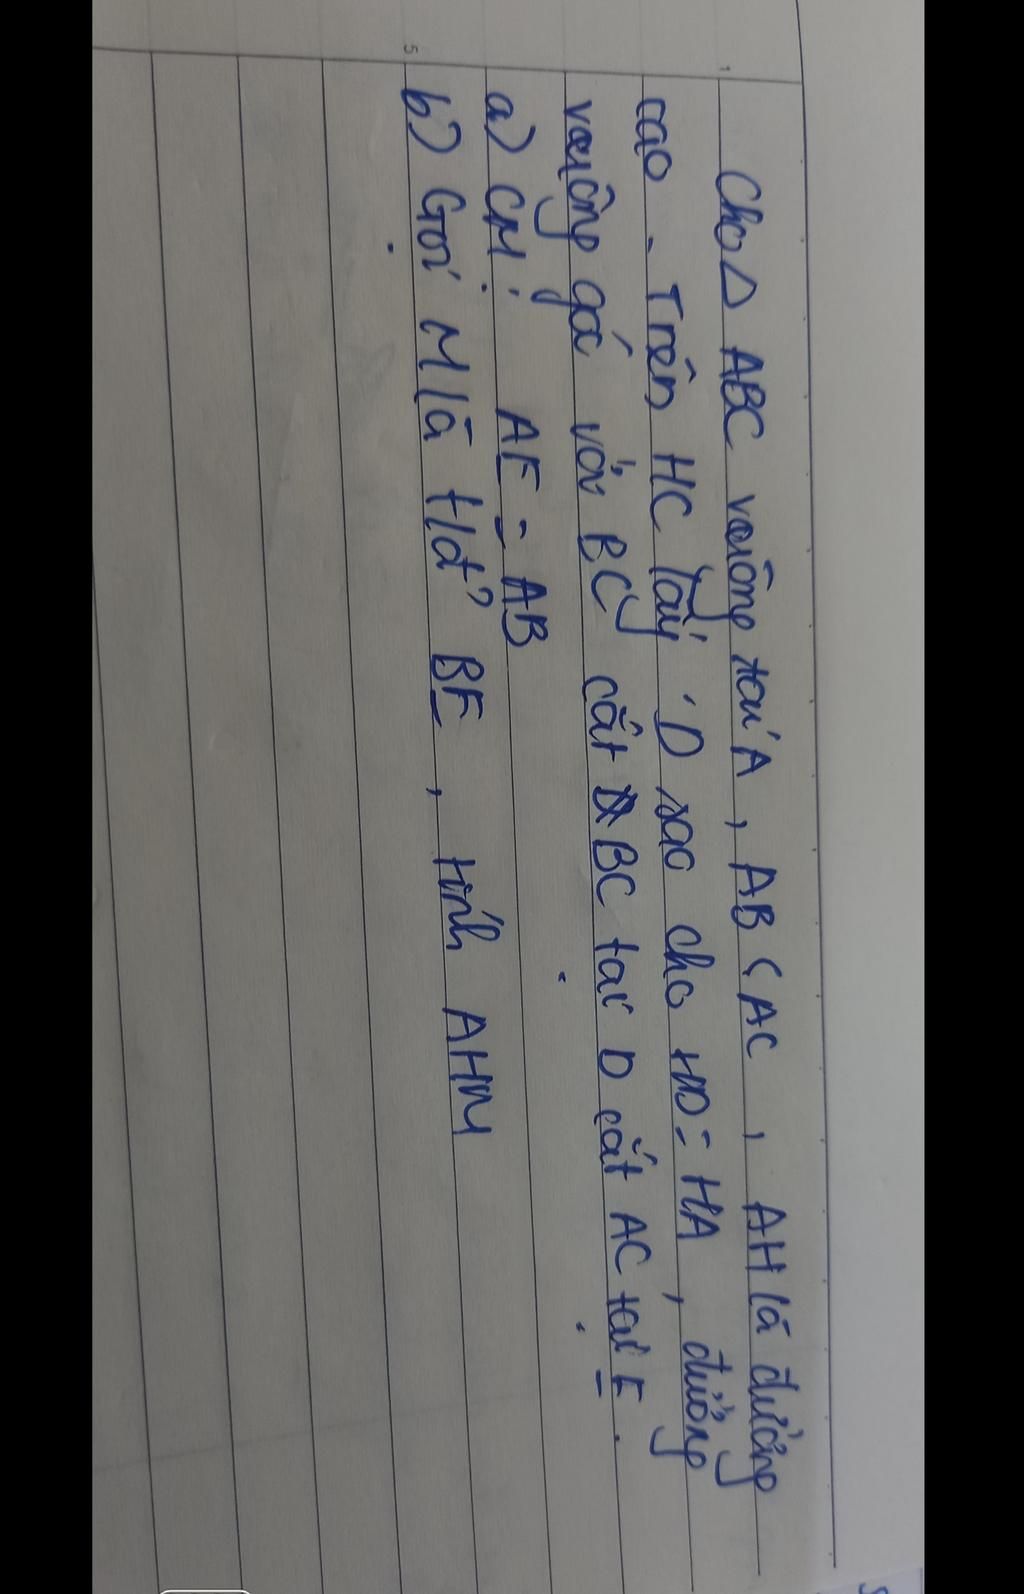 Cho Δ ABC vuông tại A, AB < AC, AH là đường
cao. Trên HC lấy D sao cho HD = HA, đường
vuông góc với BC cắt BC tại D cắt AC tại E.
a) CM: AE = AB
b) Gọi M là tđ' BE, tính AHM
1
5